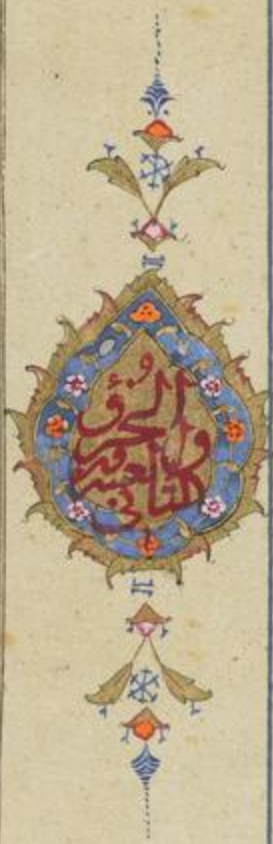 الجزؤ
الثانی
والعشرون